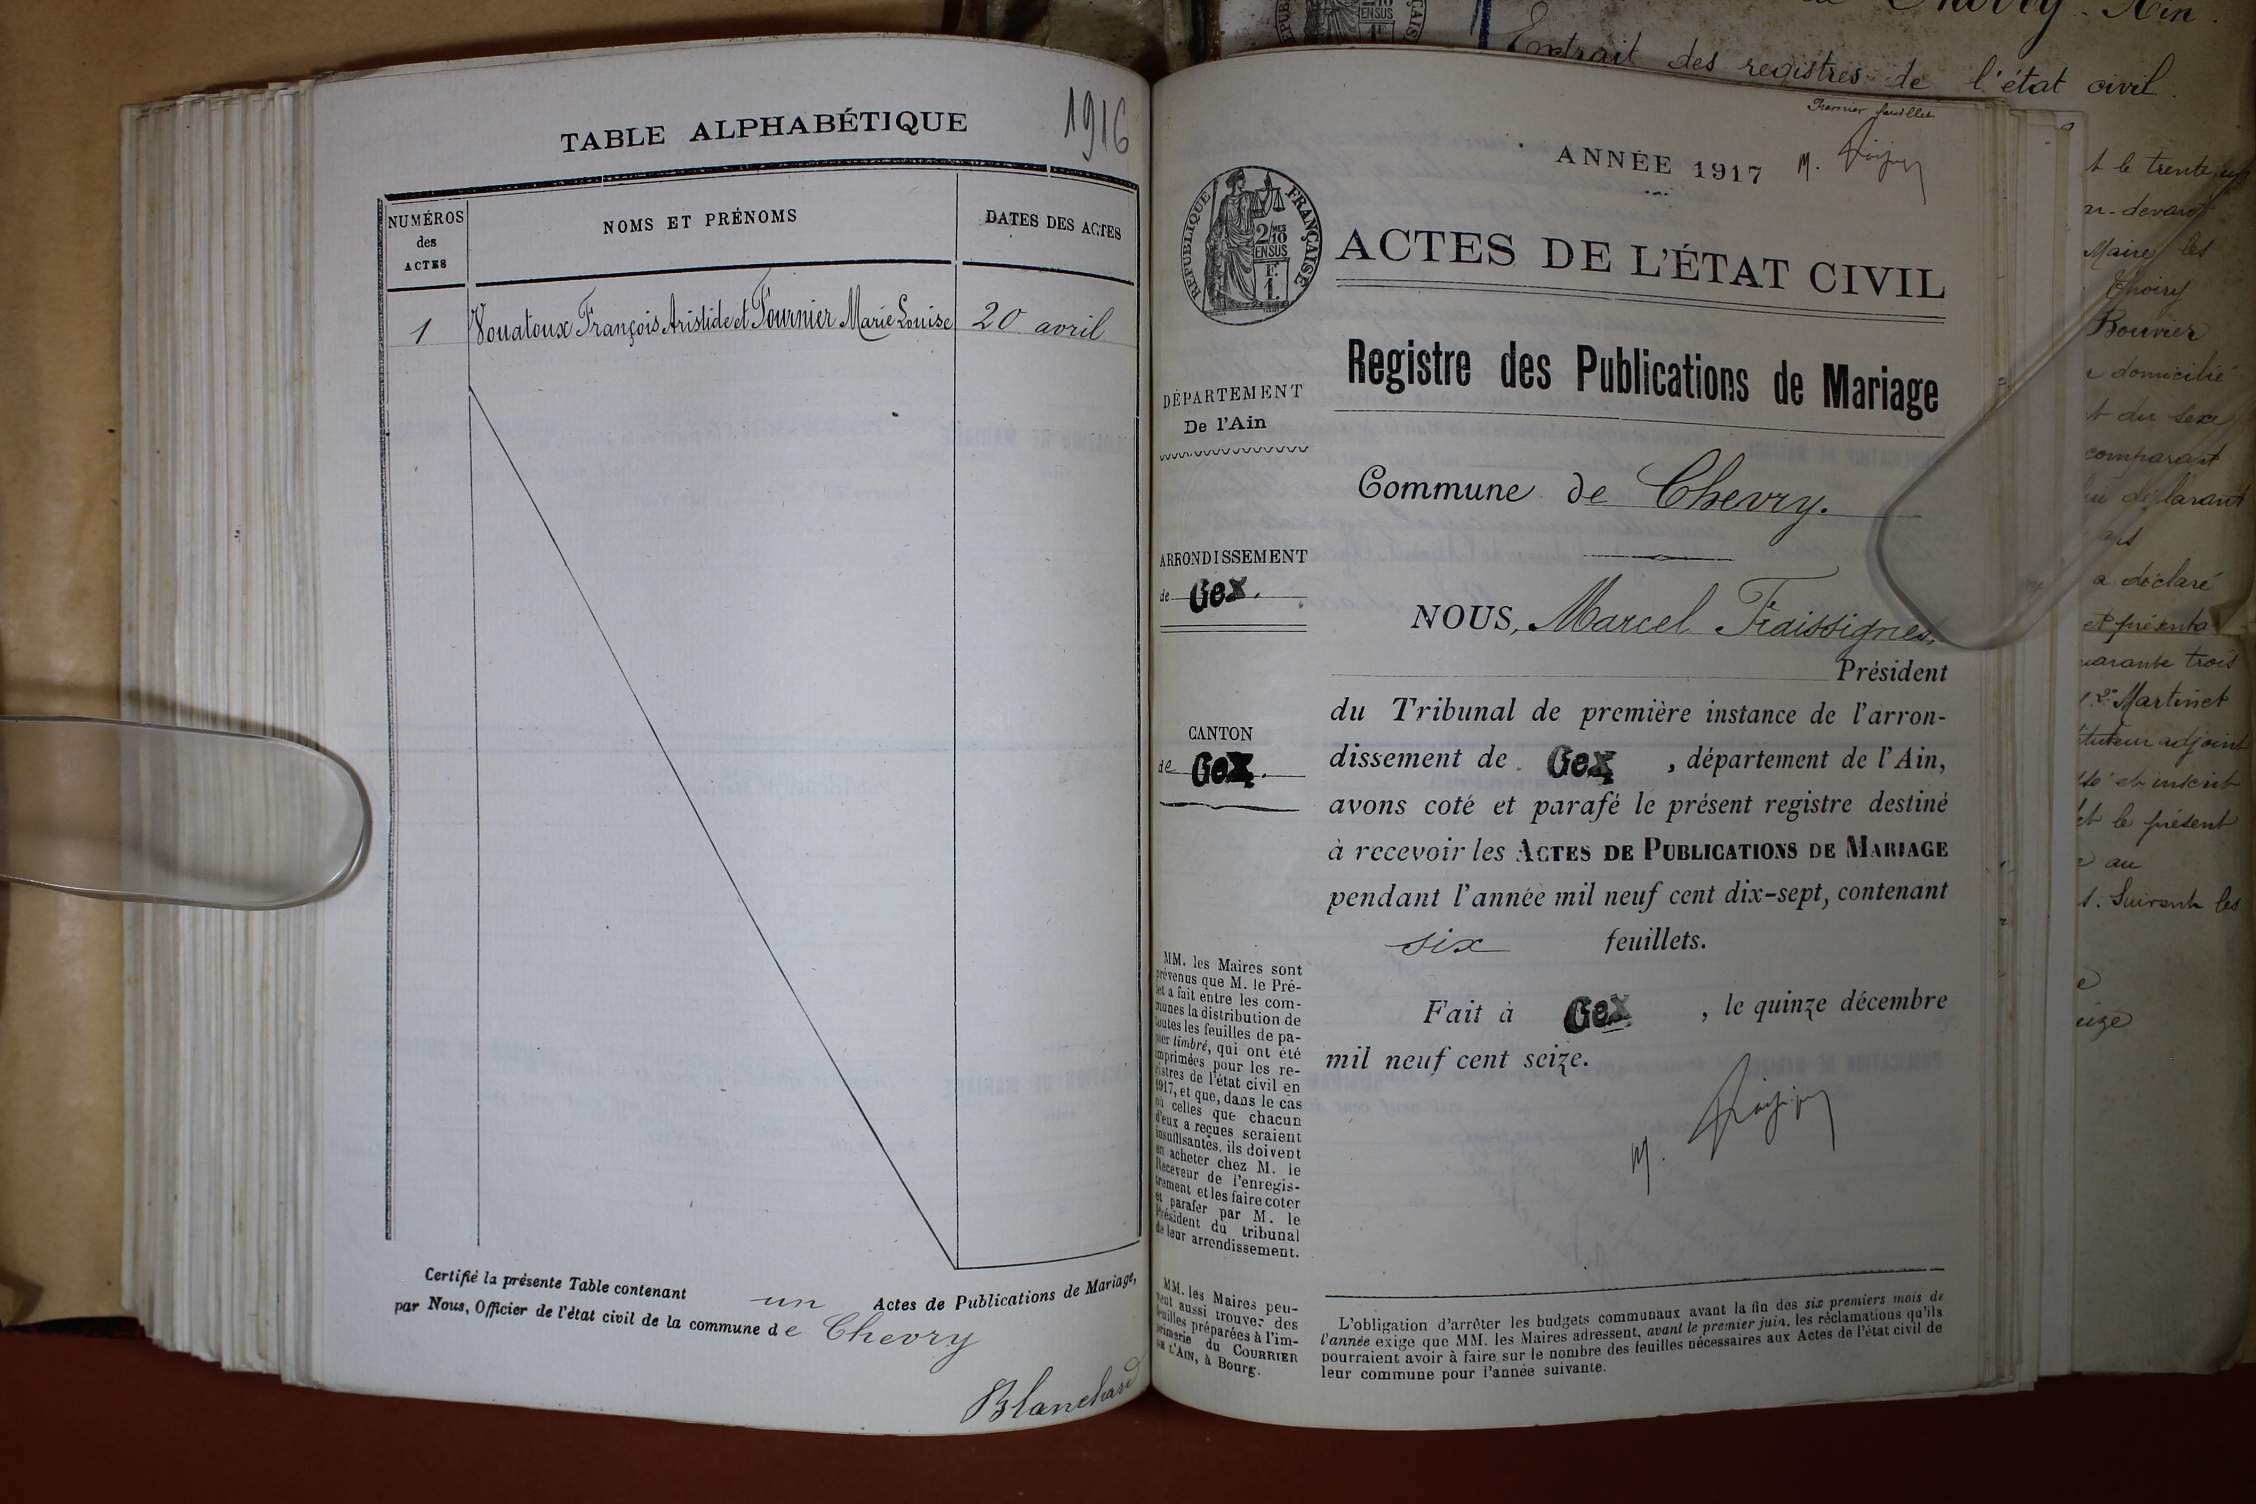 TABLE ALPHABÉTIQUE
1916
NUMÉROS
des
ACTES
NOMS ET PRÉNOMS
DATES DES ACTES
1
Vouatoux François Aristide et Fournier Marie Louise
20 avril
Certifié la présente Table contenant un Actes de Publications de Mariage,
par Nous, Officier de l'état civil de la commune de Chevry
Blanchard
Premier feuillet
ANNÉE 1917
M.
RÉPUBLIQUE FRANÇAISE
2/10
MES
EN SUS
F.
1.
ACTES DE L'ÉTAT CIVIL
Registre des Publications de Mariage
DÉPARTEMENT
De l'Ain
Commune de Chevry.
ARRONDISSEMENT
de Gex.
CANTON
de Gex.
NOUS, Marcel Fraissignes,
Président
du Tribunal de première instance de l'arron-
dissement de Gex, département de l'Ain,
avons coté et parafé le présent registre destiné
à recevoir les ACTES DE PUBLICATIONS DE MARIAGE
pendant l'année mil neuf cent dix-sept, contenant
six feuillets.
Fait à Gex, le quinze décembre
mil neuf cent seize.
M.
MM. les Maires sont
prévenus que M. le Pré-
fet a fait entre les com-
munes la distribution de
toutes les feuilles de pa-
pier timbré, qui ont été
imprimées pour les re-
gistres de l'état civil en
1917, et que, dans le cas
où celles que chacun
d'eux a reçues seraient
insuffisantes, ils doivent
en acheter chez M. le
Receveur de l'enregis-
trement et les faire coter
et parafer par M. le
Président du tribunal
de leur arrondissement.
MM. les Maires peu-
vent aussi trouver des
feuilles préparées à l'im-
primerie du COURRIER
DE L'AIN, à Bourg.
L'obligation d'arrêter les budgets communaux avant la fin des six premiers mois de
l'année exige que MM. les Maires adressent, avant le premier juin, les réclamations qu'ils
pourraient avoir à faire sur le nombre des feuilles nécessaires aux Actes de l'état civil de
leur commune pour l'année suivante.
Chevry - Ain.
Extrait des registres de l'état civil.
le trente
Maire les
Bouvier
domicilié
du sexe
comparant
déclarant
a déclaré
et présenta
trois
Martinet
adjoint
et inscrit
le présent
au
Suivent les